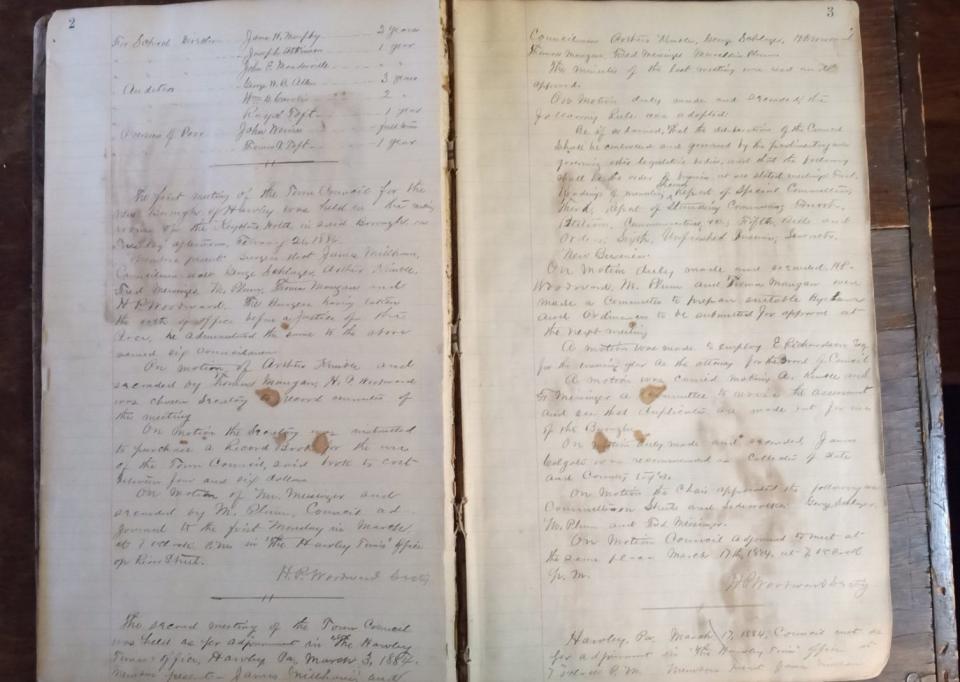 2
For School Director James H. Murphy 2 years
Joseph Atkinson 1 year
John E. Manderville "
Auditors George H. B. Allen 3 years
Wm. B. 2 "
Royal Taft 1 year
Overseers of Poor John Warner full term
Thomas J. Taft 1 year
The first meeting of the Town Council for the
new Borough of Hawley was held in the
rooms of the in said Borough on
Tuesday afternoon, February 26 1884.
Members present Burgess elect James Millham,
Councilmen elect George Schlager, Arthur Kimble,
Fred Messinger M. Plum, Thomas Mangan and
H. P. Woodward. The Burgess having taken
the oath of office before a justice of the
, he administered the same to the above
named six Councilmen.
On motion of Arthur Kimble and
seconded by Thomas Mangan, H. P. Woodward
was chosen Secretary to record minutes of
the meeting
On motion the Secretary was instructed
to purchase a Record Book for the use
of the Town Council, said book to cost
between four and six dollars
On Motion of Mr. Messinger and
seconded by M. Plum, Council ad-
journed to the first Monday in March
at 7 o'clock P.M. in "The Hawley Times" Office
on River Street.
H. P. Woodward Secty
The second meeting of the Town Council
was held as per adjournment in "The Hawley
Times" Office, Hawley Pa, March 3, 1884.
Members present - James Millham and
3
Councilmen Arthur Kimble, George Schlager, H P Woodward
Thomas Mangan, Fred Messinger Plum.
The minutes of the last meeting were read and
approved.
On Motion duly made and seconded, the
following Rule was adopted:
Be it ordained, That the deliberations of the Council
shall be conducted and governed by the parliamentary
governing other legislative bodies, and that the following
shall be the order of business at all stated meetings: First,
Reading of minutes, Second, Report of Special Committees,
Third, Report of Standing Committees, Fourth,
Petitions, Communications, &c., Fifth, Bills and
Orders, Sixth, Unfinished Business, Seventh,
New Business.
On Motion duly made and seconded, H P
Woodward, M. Plum and Thomas Mangan were
made a Committee to prepare suitable By-Laws
and Ordinances to be submitted for approval at
the next meeting
A motion was made to employ E Richardson Esq
for the ensuing year as the attorney for the Board of Council
A motion was carried making A. Kimble and
F. Messinger a Committee to the assessment
and see that duplicates are made out for use
of the Borough.
On Motion duly made and seconded, James
Colgate was recommended as Collector of State
and County Taxes.
On Motion the Chair appointed the following as
Committee on Streets and Sidewalks: George Schlager,
M. Plum and Fred Messinger.
On Motion Council adjourned to meet at
the same place March 17th, 1884, at 7 o'clock
P. M.
H P Woodward Secty
Hawley, Pa, March 17, 1884, Council met as
per adjournment in "The Hawley Times" Office at
7 o'clock P. M. Members present James Millham